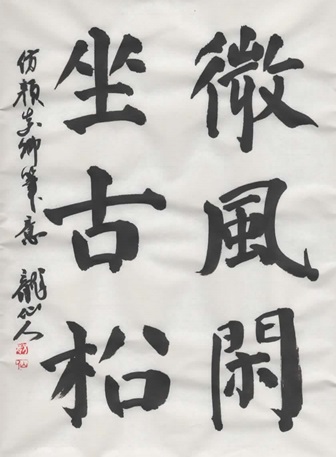 微風閑
坐古松
仿顏真卿筆意 龍仙人